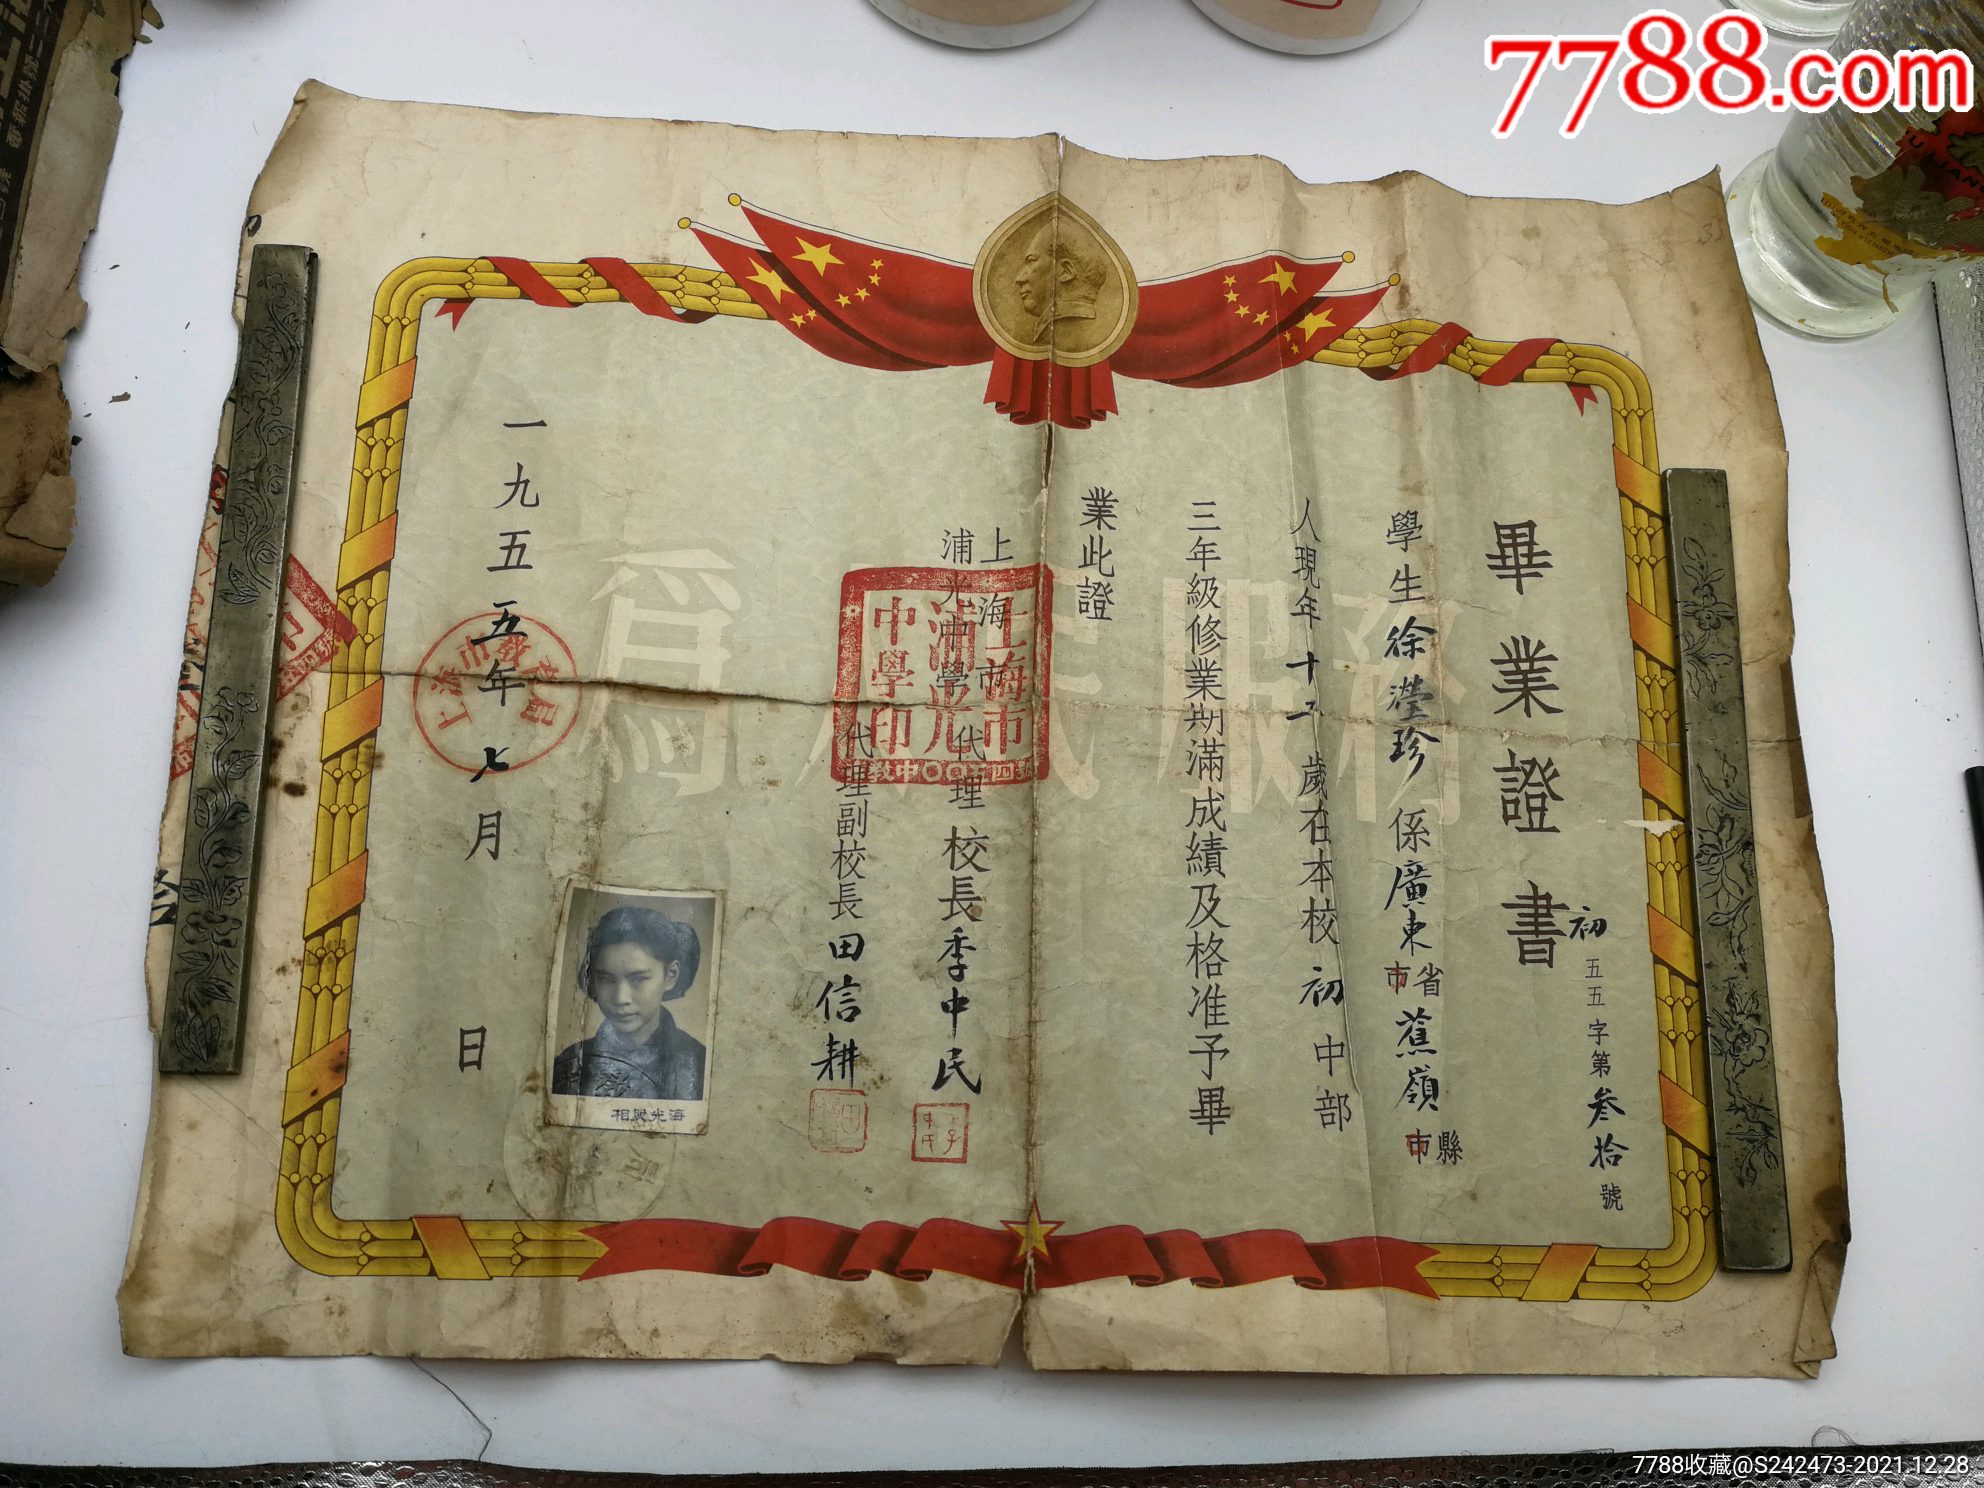 7788.com
畢業證書
初五五字第叁拾號
學生徐瀅珍係廣東省市蕉嶺縣市
人現年十五歲在本校初中部
三年級修業期滿成績及格准予畢
業此證
上海市
浦光中學
代理校長季中民
代理副校長田信耕
一九五五年七月 日
為人民服務
上海市浦光中學印
上海市教育局
海光照相
7788收藏@S242473-2021.12.28